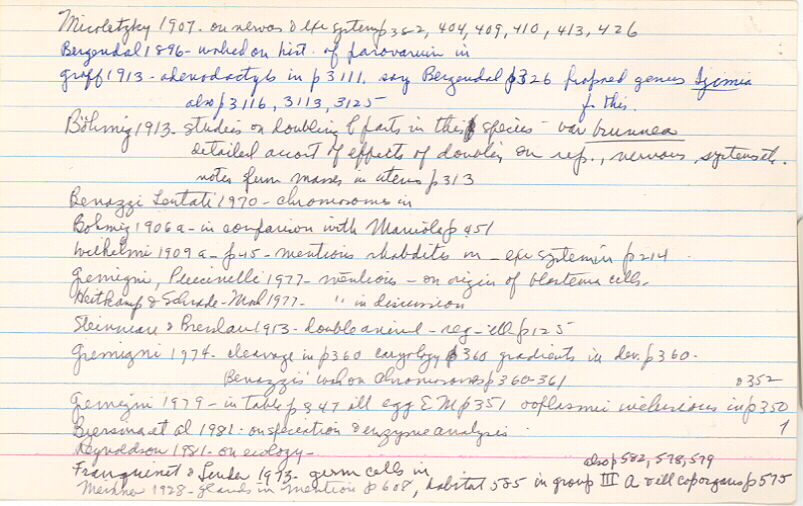 Micoletzky 1907. on nervous & exc system p 382, 404, 409, 410, 413, 426
Bergendal 1896 - worked on hist. of parovarium in
Graff 1913 - adenodactyls in p 3111. say Bergendal p326 proposed genus Izimia
also p 3116, 3113, 3125 for this.
Böhmig 1913 - studies on doubling of parts in this species - var brunnea
detailed account of effects of doubling on rep., nervous, systems etc.
notes sperm masses in uterus p 313
Benazzi Lentati 1970 - chromosomes in
Bohmig 1906a - in comparison with Maricola p 451
Wilhelmi 1909a - p 15 - mentions rhabdites in - exc system in p 214
Gremigni, Puccinelli 1977 - mentions - on origin of blastema cells.
Heitkamp & Schrade-Mock 1977 - " in discussion
Steinmann & Bresslau 1913 - double animal - reg - ill p 125
Gremigni 1974 - cleavage in p 360 caryology p 360 gradients in dev. p 360 -
Benazzi's work on chromosomes p 360-361
p 352
Gremigni 1979 - in table p 347 ill egg EM p 351 ooplasmic inclusions in p 350
Biersma et al 1981 - on speciation & enzyme analysis
Reynoldson 1981 - on ecology -
also p 582, 578, 579
Franquinet & Lender 1973 - germ cells in
Meixner 1928 - glands in mention p 608, habitat 585 in group III A & ill cop organs p 575